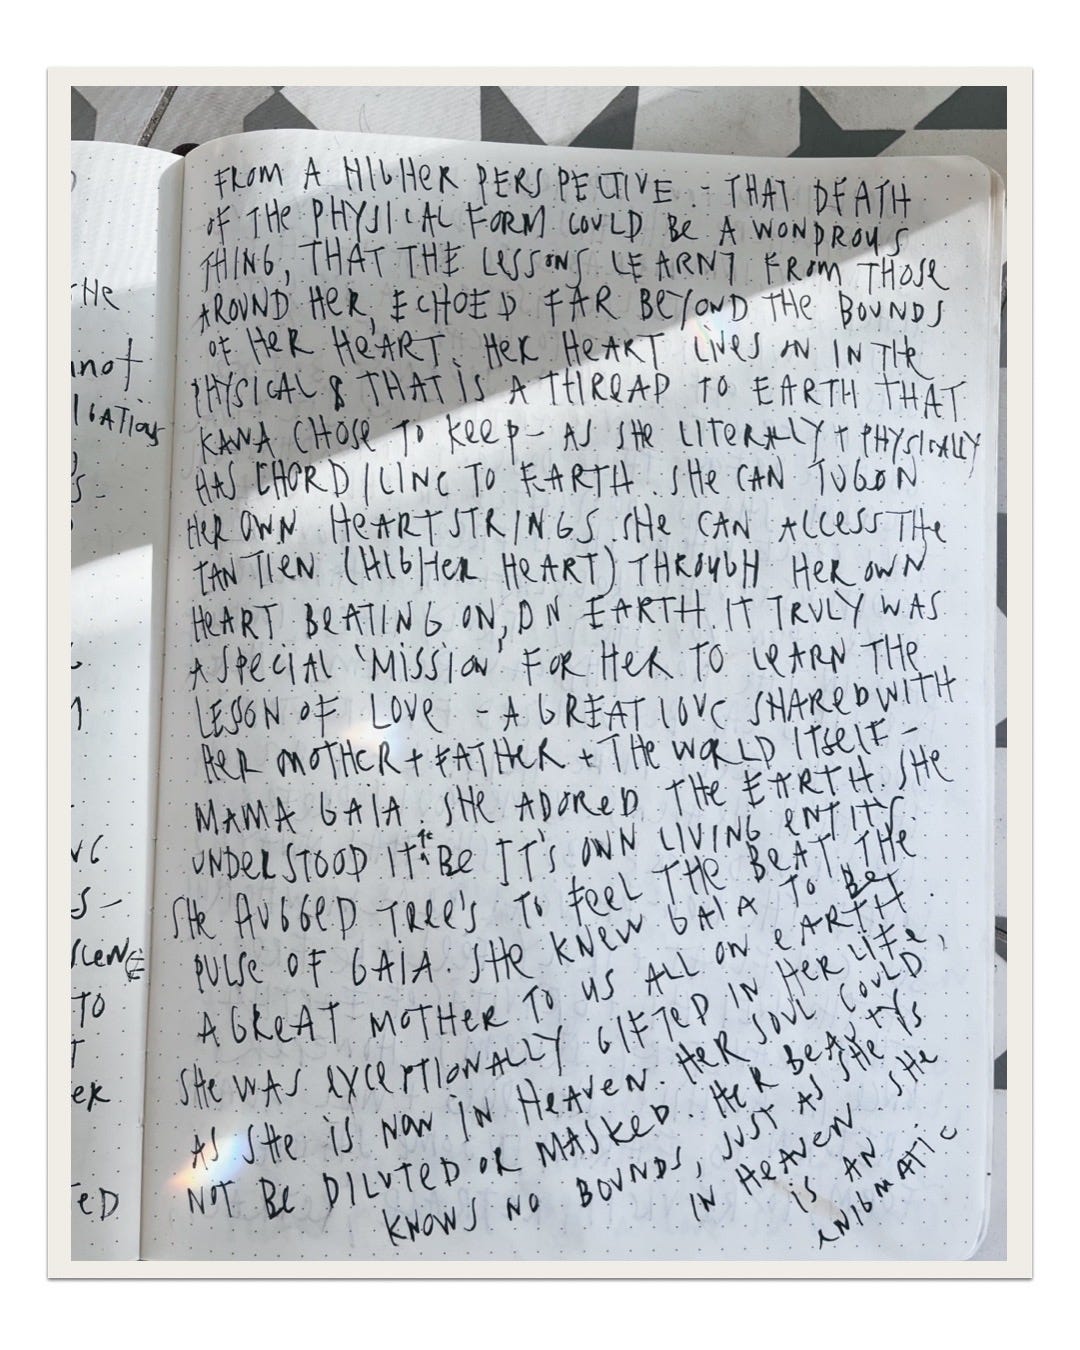 FROM A HIGHER PERSPECTIVE - THAT DEATH
OF THE PHYSICAL FORM COULD BE A WONDROUS
THING, THAT THE LESSONS LEARNT FROM THOSE
AROUND HER, ECHOED FAR BEYOND THE BOUNDS
OF HER HEART. HER HEART LIVES ON IN THE
PHYSICAL & THAT IS A THREAD TO EARTH THAT
KANA CHOSE TO KEEP - AS SHE LITERALLY + PHYSICALLY
HAS CHORD/LINC TO EARTH. SHE CAN TUG ON
HER OWN HEARTSTRINGS. SHE CAN ACCESS THE
TAN TIEN (HIGHER HEART) THROUGH HER OWN
HEART BEATING ON, ON EARTH. IT TRULY WAS
A SPECIAL 'MISSION' FOR HER TO LEARN THE
LESSON OF LOVE - A GREAT LOVE SHARED WITH
HER MOTHER + FATHER + THE WORLD ITSELF -
MAMA GAIA. SHE ADORED THE EARTH. SHE
UNDERSTOOD IT TO BE IT'S OWN LIVING ENTITY.
SHE HUGGED TREE'S TO FEEL THE BEAT, THE
PULSE OF GAIA. SHE KNEW GAIA TO BE
A GREAT MOTHER TO US ALL ON EARTH.
SHE WAS EXCEPTIONALLY GIFTED IN HER LIFE,
AS SHE IS NOW IN HEAVEN. HER SOUL COULD
NOT BE DILUTED OR MASKED. HER BEAUTY
KNOWS NO BOUNDS, JUST AS SHE IS
IN HEAVEN. SHE
IS AN
ENIGMATIC